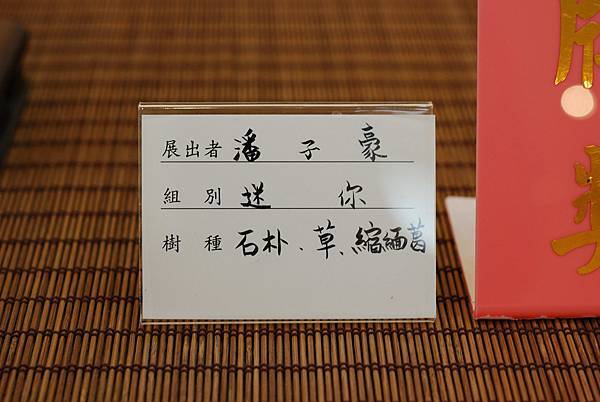 展出者 潘子豪
組別 迷你
樹種 石朴、草、縮緬葛
獎